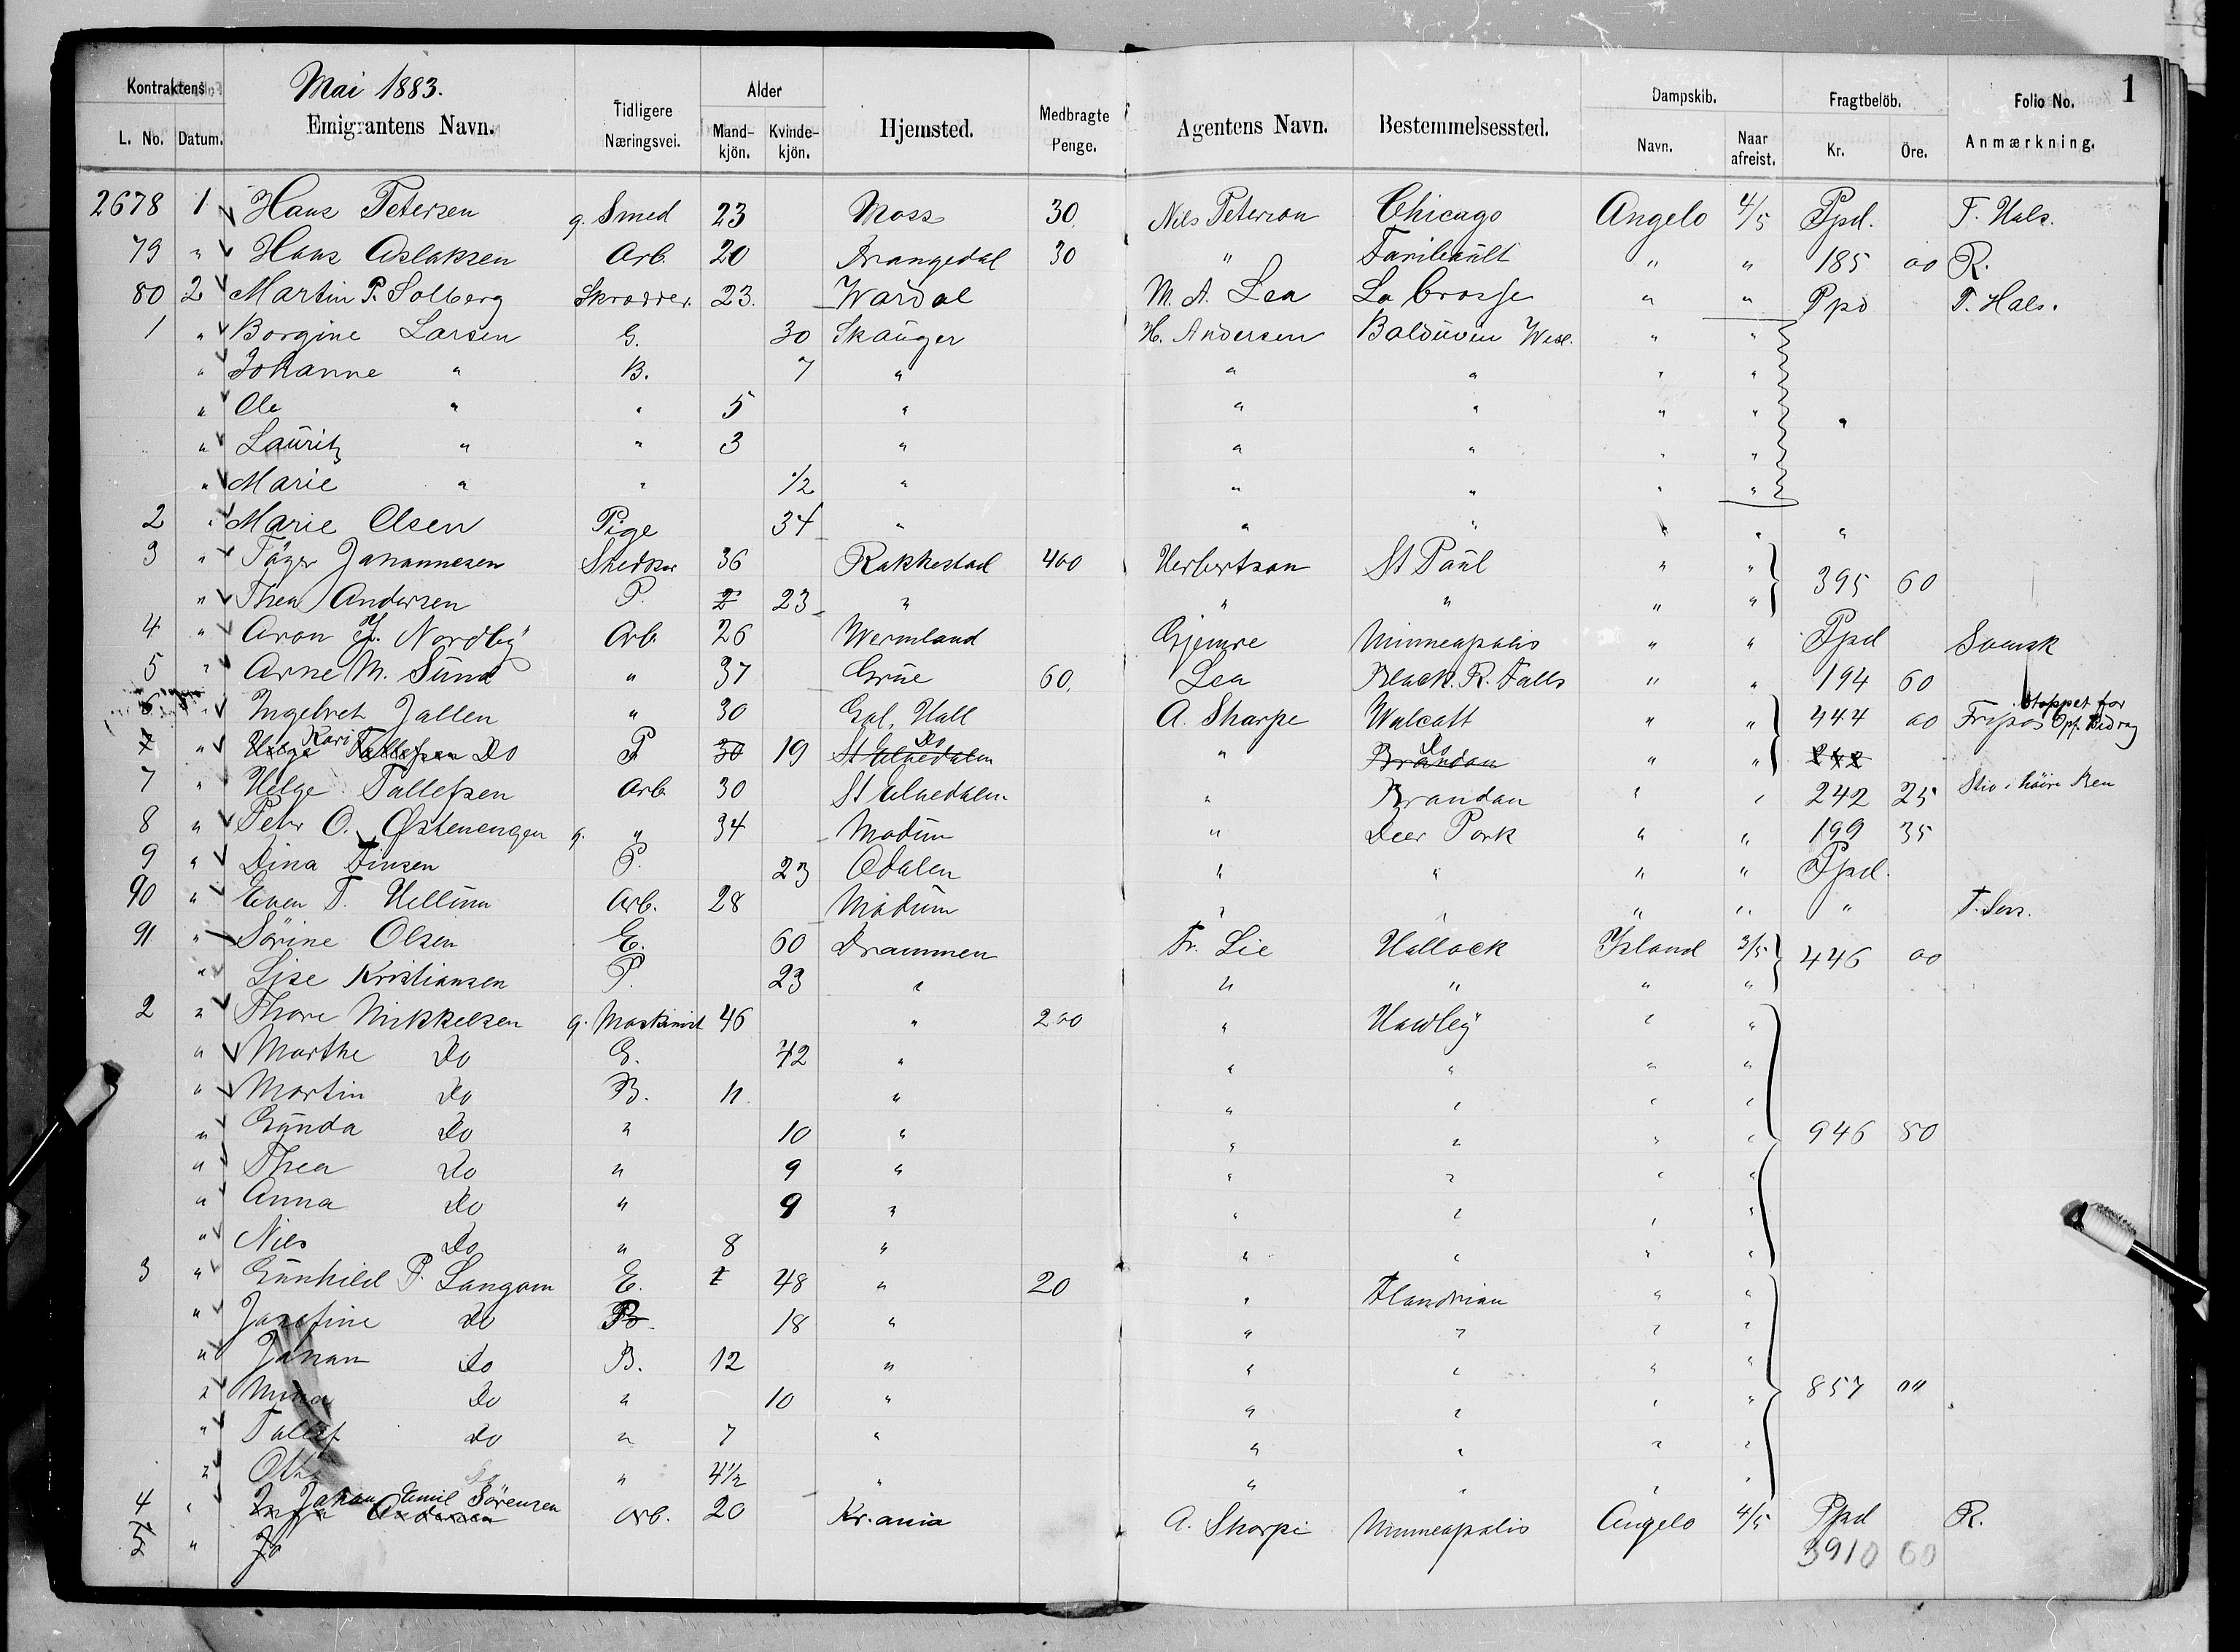 Mai 1883.
1
Kontraktens Emigrantens Navn. Tidligere Næringsvei. Alder Hjemsted. Medbragte Penge. Agentens Navn. Bestemmelsessted. Dampskib. Fragtbelöb. Folio No.
L. No. Datum. Mand-kjön. Kvinde-kjön. Navn. Naar afreist. Kr. Öre. Anmærkning.
2678 1 Hans Petersen g. Smed 23 Moss 30 Nils Peterson Chicago Angelo 4/5 Ppd. T. Hals.
79 " Hans Aslaksen Arb. 20 Drangedal 30 " Faribault " " 185 00 R.
80 2 Martin P. Solberg Skrædder. 23. Wardal M. A. Lea La Crosse " " Ppd T. Hals.
1 " Borgine Larsen G. 30 Skauger H. Andersen Balduven Wisc. " "
" Johanne " B. 7 " " " " "
" Ole " " 5 " " " " " "
" Lauritz " " 3 " " " " "
" Marie " " 1/2 " " " " "
2 " Marie Olsen Pige 34 " " " " " "
3 " Johannesen 36 Rakkestad 400 Herbertson St Paul " " 395 60
" Thea Andersen P. 23 " " " " "
4 " Aron J. Nordby Arb. 26 Wermland Gjemre Minneapolis " " Ppd Svensk
5 " Arne M. Sund " 37 Grue 60. Lea Black. R. Falls " " 194 60
6 " Ingebret Jallen " 30 Gol, Hall A. Sharpe Walcott " " 444 00 Stoppet for
" Kari Do P 30 19 Do " Do " " 242
7 " Helge Tallefsen Arb. 30 St Elvedalen " Brandon " " 242 25
8 " Peter O. Østenengen g. " 34 Modum " Deer Park " " 199 35
9 " Dina Finsen P. 23 Odalen " " " " Ppd.
90 " Even T. Hellum Arb. 28 Modum " " " " "
91 " Sörine Olsen E. 60 Drammen Fr. Lie Hallock Island 3/5 446 00
" Lise Kristiansen P. 23 " " " " "
2 " Thore Mikkelsen g. Maskinist 46 " 200 " Hawley " "
" Marthe Do G. 42 " " " " "
" Martin Do B. 11 " " " " "
" Gunda Do " 10 " " " " " 946 80
" Thea Do " 9 " " " " "
" Anna Do " 9 " " " " "
" Nils Do " 8 " " " " "
3 " Gunhild P. Langom E. 48 " 20 " Flandrian " "
" Josefine Do P. 18 " " " " "
" Johan Do B. 12 " " " " "
" Mina Do " 10 " " " " " 857 00
" Tallef Do " 7 " " " " "
" Otto " 4 1/2 " " " " "
4 " Johan Emil Sörensen Arb. 20 Kr.ania A. Sharpe Minneapolis Angelo 4/5 Ppd R.
5 " Jo 3910 60